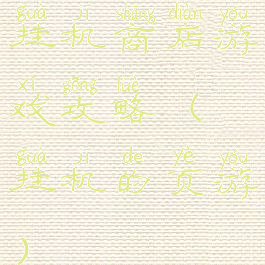 guà jī shāng diàn yóu
挂机商店游
xì gōng lüè
戏攻略(
guà jī de yè yóu
挂机的页游
)